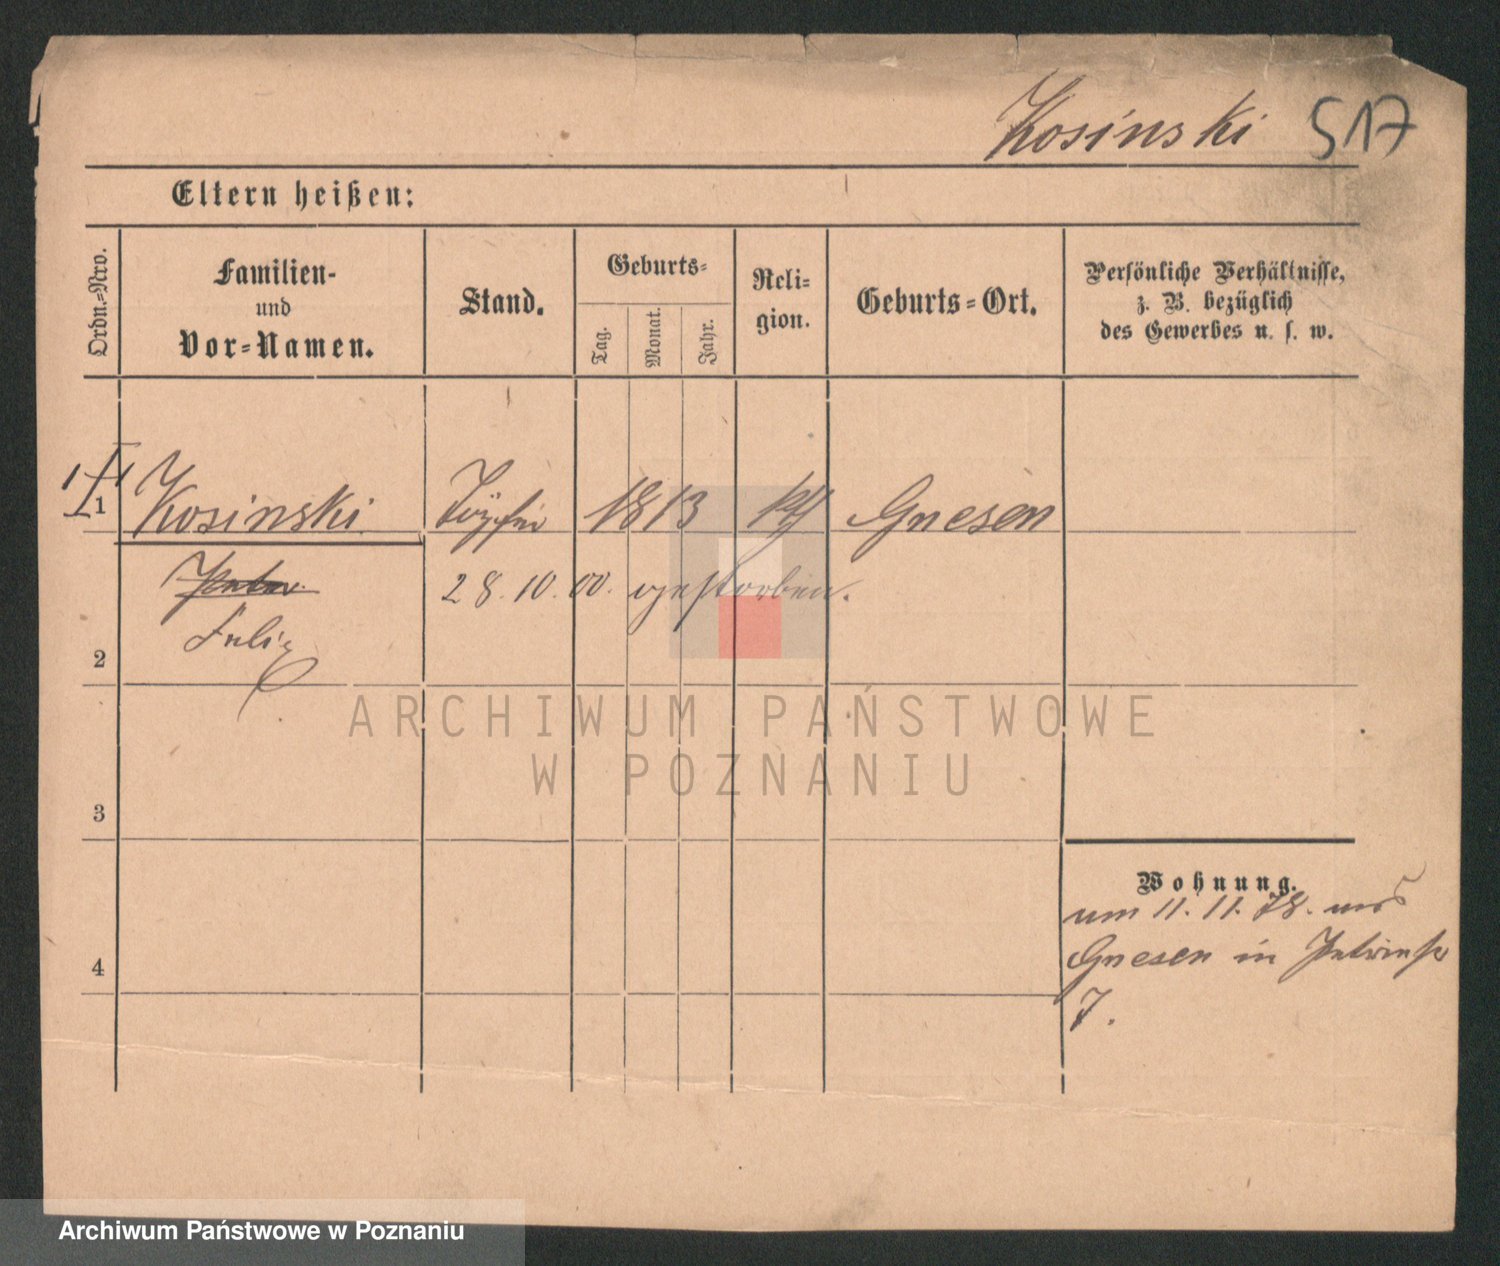 Kosinski 517
Eltern heißen:
Ordn.=Nro.
Familien-
und
Vor=Namen.
Stand.
Geburts=
Tag.
Monat.
Jahr.
Reli=
gion.
Geburts=Ort.
Persönliche Verhältnisse,
z. B. bezüglich
des Gewerbes u. s. w.
1 Kosinski Töpfer 1813 Gnesen
28. 10. 00. gestorben.
2
3
4
Wohnung.
um 11. 11. 78. aus
Gnesen in
7.
ARCHIWUM PAŃSTWOWE
W POZNANIU
Archiwum Państwowe w Poznaniu